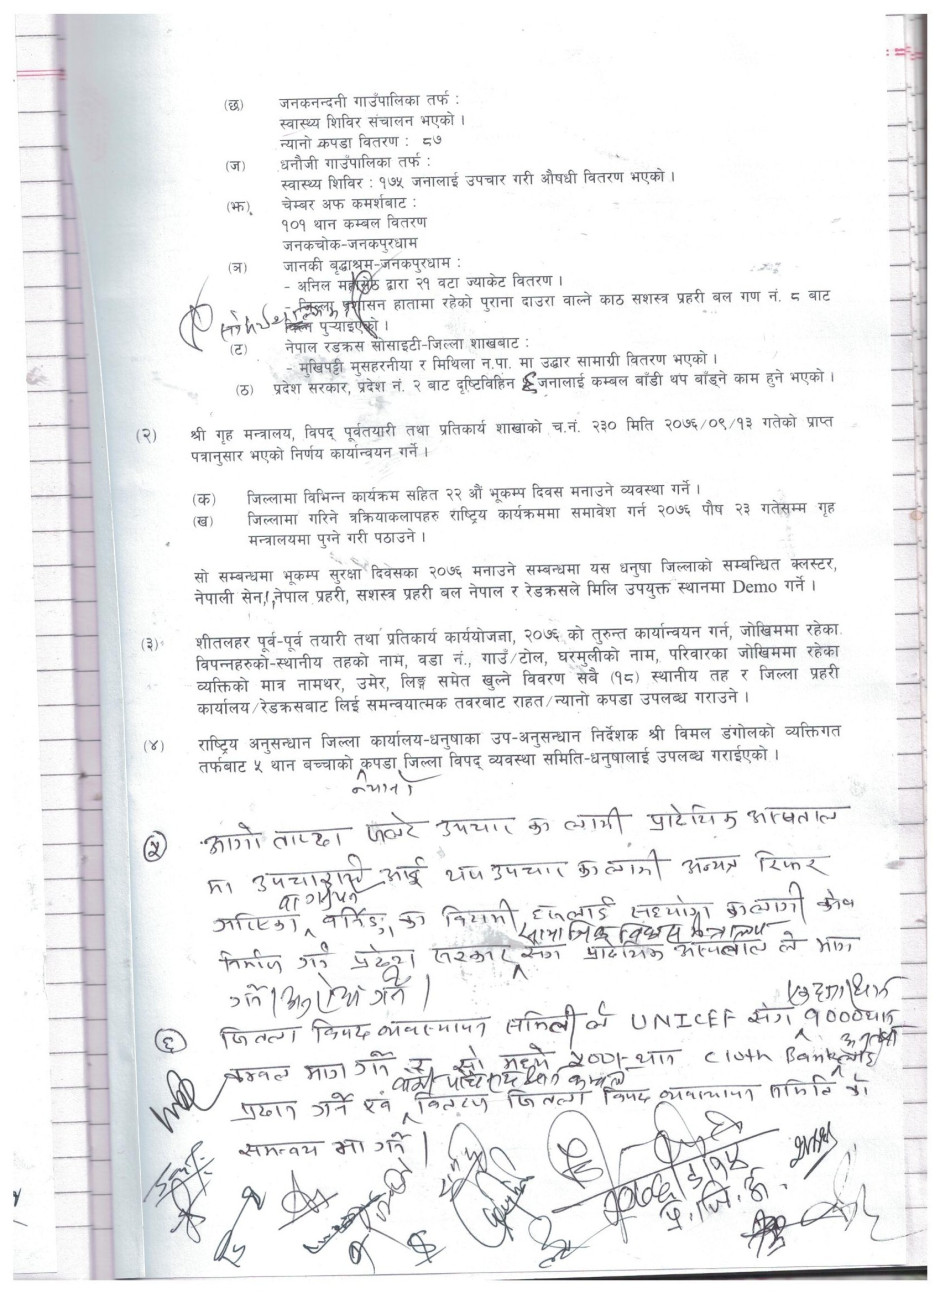 (छ) जनकनन्दनी गाउँपालिका तर्फ :
स्वास्थ्य शिविर संचालन भएको ।
न्यानो कपडा वितरण : ८७
(ज) धनौजी गाउँपालिका तर्फ :
स्वास्थ्य शिविर : १७५ जनालाई उपचार गरी औषधी वितरण भएको ।
(झ) चेम्बर अफ कमर्शबाट :
१०१ थान कम्बल वितरण
जनकचोक-जनकपुरधाम
(ञ) जानकी बृद्धाश्रम-जनकपुरधाम :
- अनिल महासेठ द्वारा २१ वटा ज्याकेट वितरण ।
- जिल्ला प्रशासन हातामा रहेको पुराना दाउरा वाल्ने काठ सशस्त्र प्रहरी बल गण नं. ८ बाट
पुर्‍याइएको ।
(ट) नेपाल रेडक्रस सोसाइटी-जिल्ला शाखबाट :
- मुखिपट्टी मुसहरनीया र मिथिला न.पा. मा उद्धार सामाग्री वितरण भएको ।
(ठ) प्रदेश सरकार, प्रदेश नं. २ बाट दृष्टिविहिन ६ जनालाई कम्बल बाँडी थप बाँड्ने काम हुने भएको ।
(२) श्री गृह मन्त्रालय, विपद् पूर्वतयारी तथा प्रतिकार्य शाखाको च.नं. २३० मिति २०७६/०९/१३ गतेको प्राप्त
पत्रानुसार भएको निर्णय कार्यान्वयन गर्ने ।
(क) जिल्लामा विभिन्न कार्यक्रम सहित २२ औं भूकम्प दिवस मनाउने व्यवस्था गर्ने ।
(ख) जिल्लामा गरिने त्रक्रियाकलापहरु राष्ट्रिय कार्यक्रममा समावेश गर्न २०७६ पौष २३ गतेसम्म गृह
मन्त्रालयमा पुग्ने गरी पठाउने ।
सो सम्बन्धमा भूकम्प सुरक्षा दिवसका २०७६ मनाउने सम्बन्धमा यस धनुषा जिल्लाको सम्बन्धित क्लस्टर,
नेपाली सेना, नेपाल प्रहरी, सशस्त्र प्रहरी बल नेपाल र रेडक्रसले मिलि उपयुक्त स्थानमा Demo गर्ने ।
(३) शीतलहर पूर्व-पूर्व तयारी तथा प्रतिकार्य कार्ययोजना, २०७६ को तुरुन्त कार्यान्वयन गर्न, जोखिममा रहेका
विपन्नहरुको-स्थानीय तहको नाम, वडा नं., गाउँ/टोल, घरमुलीको नाम, परिवारका जोखिममा रहेका
व्यक्तिको मात्र नामथर, उमेर, लिङ्ग समेत खुल्ने विवरण सबै (१८) स्थानीय तह र जिल्ला प्रहरी
कार्यालय/रेडक्रसबाट लिई समन्वयात्मक तवरबाट राहत/न्यानो कपडा उपलब्ध गराउने ।
(४) राष्ट्रिय अनुसन्धान जिल्ला कार्यालय-धनुषाका उप-अनुसन्धान निर्देशक श्री विमल डंगोलको व्यक्तिगत
तर्फबाट ५ थान बच्चाको कपडा जिल्ला विपद् व्यवस्था समिति-धनुषालाई उपलब्ध गराईएको ।
न्यानो
(५) आगो ताप्दा उपचार का लागी प्रादेशिक अस्पताल
मा आई थप उपचार का लागी अन्यत्र रिफर
का सहयोग का लागी कोष
सामाजिक विकास मन्त्रालय
निर्माण गर्न प्रदेश सरकार संग प्रादेशिक अस्पताल ले माग
गर्ने ।
(६) जिल्ला विपद व्यवस्थापन समिति ले UNICEF संग १००० थान
कम्बल माग गर्ने र सो मध्ये थान Cloth Bank लाई
प्रदान गर्ने एवं वितरण जिल्ला विपद व्यवस्थापन समिति को
समन्वय मा गर्ने ।
प्र.जि.अ.